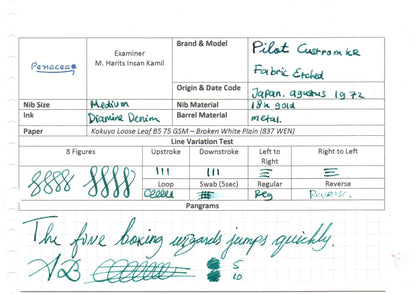 Penacea
Examiner
M. Harits Insan Kamil
Brand & Model
Pilot Custrom KR
Fabric Etched
Origin & Date Code
Japan. agustus 1972
Nib Size Medium Nib Material 18k gold
Ink Diamine Denim Barrel Material metal.
Paper Kokuyo Loose Leaf B5 75 GSM – Broken White Plain (837 WEN)
Line Variation Test
8 Figures Upstroke Downstroke Left to Right Right to Left
Loop Swab (5sec) Regular Reverse
Reg Reverse.
Pangrams
The five boxing wizards jumps quickly.
AB
5
10